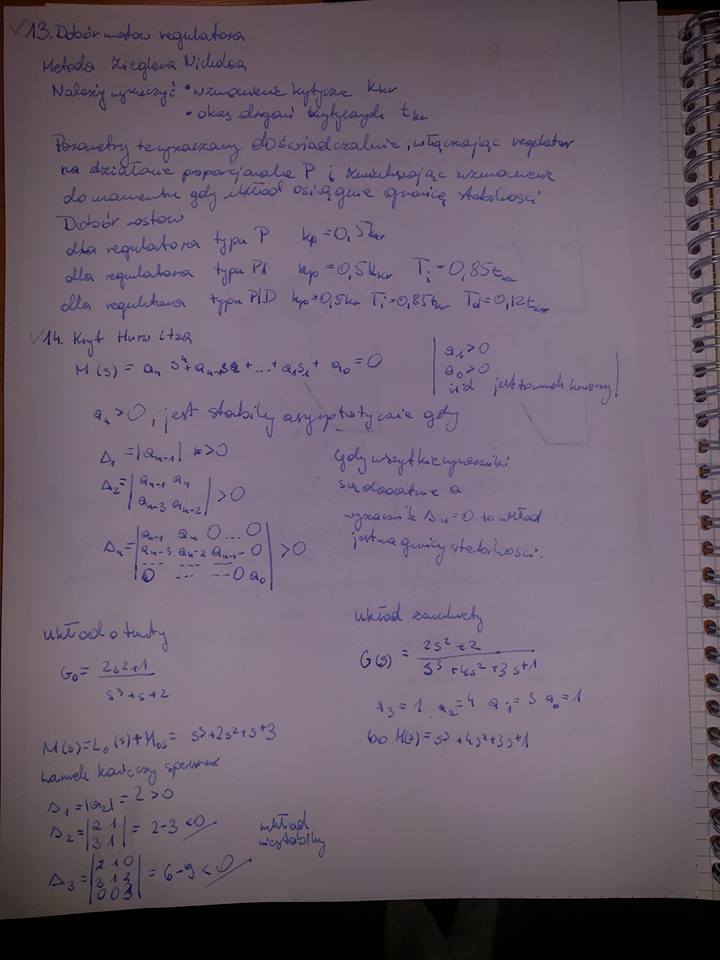 13. Dobór nastaw regulatora
Metoda Zieglera Nicholsa
Należy wyznaczyć • wzmocnienie krytycze kkr
• okres drgań krytycznych tkr
Parametry te wyznaczamy doświadczalnie, włączając regulator
na działanie proporcjonalne P i zwiększając wzmocnienie
do momentu gdy układ osiągnie granicę stabilności
Dobór nastaw
dla regulatora typu P kp = 0,5kkr
dla regulatora typu PI kp = 0,5kkr Ti = 0,85tkr
dla regulatora typu PID kp = 0,5kkr Ti = 0,85tkr Td = 0,12tkr
14. Kryt Hurwitza
M(s) = an s^n + an-1 s + ... + a1s1 + a0 = 0
a1 > 0
a0 > 0
itd jest to warunek konieczny
an > 0, jest stabilny asymptotycznie gdy
Δ1 = |an-1| > 0
Δ2 = |an-1 an
an-3 an-2| > 0
Δn = |an-1 an 0 ... 0
an-3 an-2 an-1 - 0
--- --- ---
0 --- --- 0 a0| > 0
Gdy wszystkie wyznaczniki
są dodatnie a
wyznacznik Δn = 0 to układ
jest na granicy stabilności.
układ otwarty
G0 = 2s2+1
s3+s+2
M(s) = L0(s) + M0s = s3+2s2+s+3
warunek konieczny
Δ1 = |a2| = 2 > 0
Δ2 = |2 1
3 1| = 2-3 < 0
układ
niestabilny
Δ3 = |2 1 0
3 1 2
0 0 3| = 6-9 < 0
układ zamknięty
G(s) = 2s2+2
s3+4s2+3s+1
a3 = 1, a2 = 4 a1 = 3 a0 = 1
bo M(s) = s3+4s2+3s+1